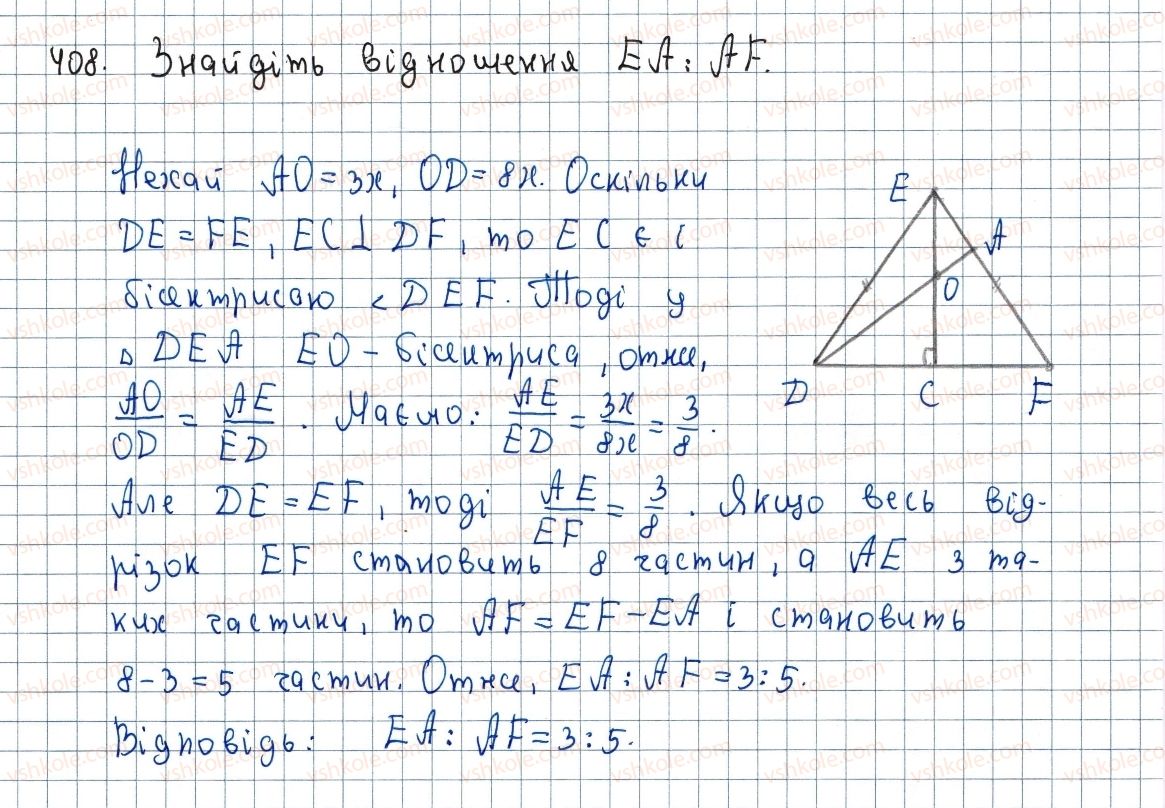 408. Знайдіть відношення EA : AF.
Нехай AO = 3x, OD = 8x. Оскільки
DE = FE, EC ⊥ DF, то EC є і
бісектрисою < DEF. Тоді у
△ DEA EO - бісектриса, отже,
AO/OD = AE/ED. Маємо: AE/ED = 3x/8x = 3/8.
Але DE = EF, тоді AE/EF = 3/8. Якщо весь від-
різок EF становить 8 частин, а AE 3 та-
ких частини, то AF = EF - EA і становить
8 - 3 = 5 частин. Отже, EA : AF = 3 : 5.
Відповідь: EA : AF = 3 : 5.
E
A
O
D
C
F
vshkole.com